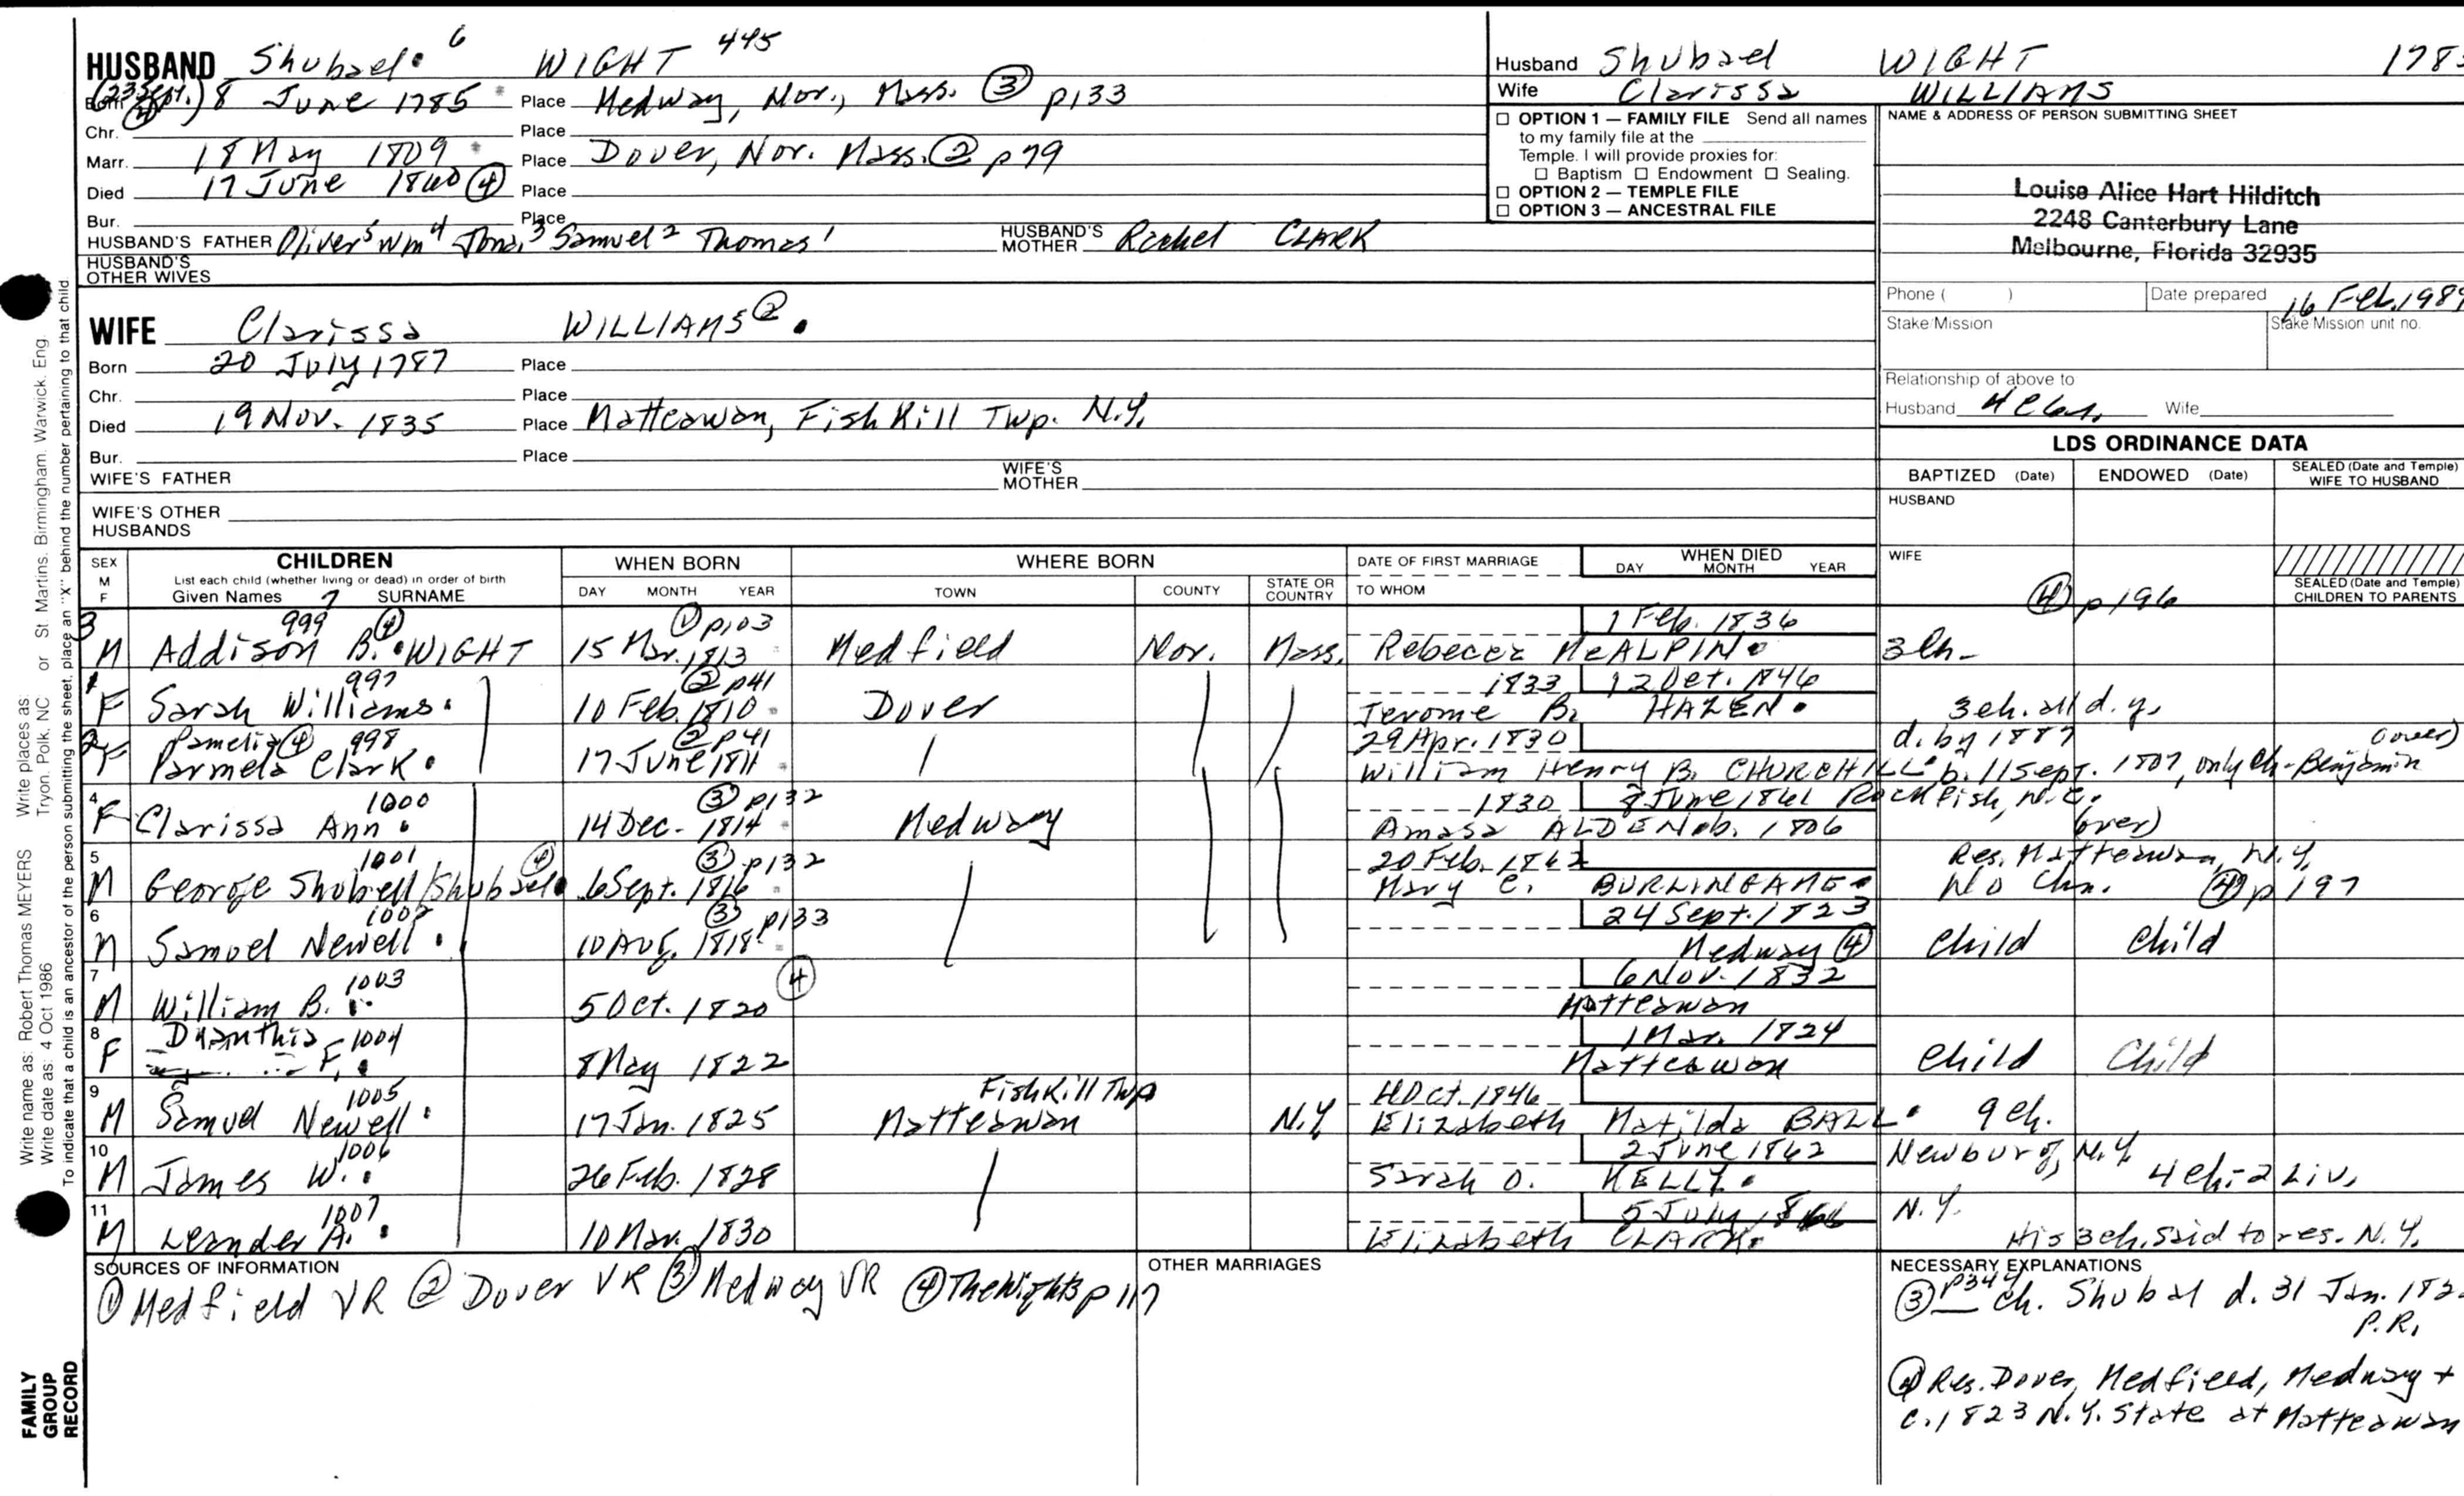 HUSBAND Shubael 6 WIGHT 445
Born (23 Sept.) ④ 8 June 1785 Place Medway, Nor., Mass. ③ p133
Chr. Place
Marr. 18 May 1809 Place Dover, Nor. Mass. ② p79
Died 17 June 1840 ④ Place
Bur. Place
HUSBAND'S FATHER Oliver5 Wm4 Jona.3 Samuel2 Thomas1 HUSBAND'S MOTHER Rachel CLARK
HUSBAND'S OTHER WIVES
WIFE Clarissa WILLIAMS ②
Born 20 July 1787 Place
Chr. Place
Died 19 Nov. 1835 Place Matteawan, Fish Kill Twp. N.Y.
Bur. Place
WIFE'S FATHER WIFE'S MOTHER
WIFE'S OTHER HUSBANDS
Husband Shubael WIGHT 178
Wife Clarissa WILLIAMS
☐ OPTION 1 — FAMILY FILE Send all names
to my family file at the
Temple. I will provide proxies for:
☐ Baptism ☐ Endowment ☐ Sealing.
☐ OPTION 2 — TEMPLE FILE
☐ OPTION 3 — ANCESTRAL FILE
NAME & ADDRESS OF PERSON SUBMITTING SHEET
Louise Alice Hart Hilditch
2248 Canterbury Lane
Melbourne, Florida 32935
Phone ( ) Date prepared 16 Feb. 198
Stake/Mission Stake/Mission unit no.
Relationship of above to
Husband Wife
LDS ORDINANCE DATA
BAPTIZED (Date) ENDOWED (Date) SEALED (Date and Temple) WIFE TO HUSBAND
HUSBAND
WIFE
SEALED (Date and Temple) CHILDREN TO PARENTS
④ p196
SEX M F CHILDREN WHEN BORN WHERE BORN DATE OF FIRST MARRIAGE WHEN DIED DAY MONTH YEAR
List each child (whether living or dead) in order of birth
Given Names 7 SURNAME DAY MONTH YEAR TOWN COUNTY STATE OR COUNTRY TO WHOM
3 999 ④ ① p103 1 Feb. 1836
M Addison B. WIGHT 15 Mar. 1813 Medfield Nor. Mass. Rebecca McALPIN 3 ch-
1 997 ② p41 1833 12 Oct. 1846
F Sarah Williams 10 Feb. 1810 Dover Jerome B. HAZEN 3 ch. all d. y.
2 Pamelia ④ 998 ② p41 29 Apr. 1830 d. by 1887 (over)
F Parmela Clark 17 June 1811 William Henry B. CHURCHILL b. 11 Sept. 1807, only ch-Benjamin
4 1000 ③ p132 1830 8 June 1861 Rockfish, N.C.
F Clarissa Ann 14 Dec. 1814 Medway Amasa ALDEN b. 1806 (over)
5 1001 ④ ③ p132 20 Feb. 1862 Res. Matteawan, N.Y.
M George Shubell/Shubael 6 Sept. 1816 Mary C. BURLINGAME No Chn. ④ p197
6 1002 ③ p133 24 Sept. 1823
M Samuel Newell 10 Aug. 1818 Medway ④ Child Child
7 1003 ④ 6 Nov. 1832
M William B. 5 Oct. 1820 Matteawan
8 1004 1 Mar. 1824
F F. 8 May 1822 Matteawan Child Child
9 1005 Fishkill Twp Oct. 1846
M Samuel Newell 17 Jan. 1825 Matteawan N.Y. Elizabeth Matilda BALL 9 ch.
10 1006 2 June 1862 Newburg, N.Y.
M James W. 26 Feb. 1828 Sarah O. KELLY 4 ch-2 liv.
11 1007 5 July N.Y.
M Leander A. 10 Mar. 1830 Elizabeth CLARK His 3 ch. said to res. N.Y.
SOURCES OF INFORMATION
① Medfield VR ② Dover VR ③ Medway VR ④ The Wights p 117
OTHER MARRIAGES
NECESSARY EXPLANATIONS
③ p344 ch. Shubal d. 31 Jan. 182
P.R.
④ Res. Dover, Medfield, Medway +
c. 1823 N.Y. State at Matteawan
Write name as: Robert Thomas MEYERS Write places as: Tryon, Polk, NC or St. Martins, Birmingham, Warwick, Eng.
Write date as: 4 Oct 1986
To indicate that a child is an ancestor of the person submitting the sheet, place an "X" behind the number pertaining to that child.
FAMILY
GROUP
RECORD